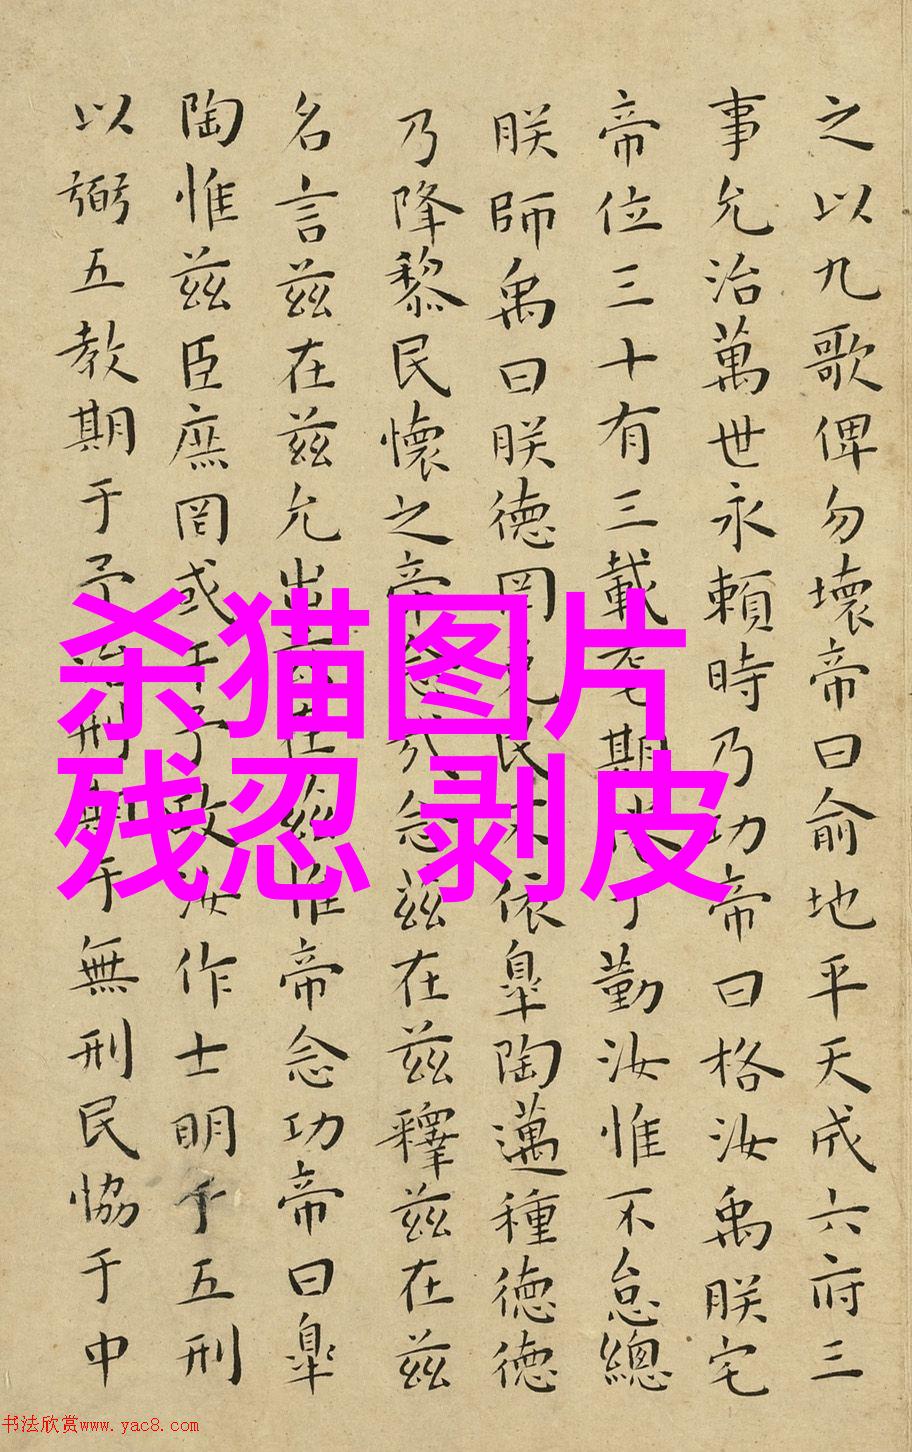 之以九歌俾勿壞帝曰俞地平天成六府三
事允治萬世永賴時乃功帝曰格汝禹朕宅
帝位三十有三載耄期于勤汝惟不怠總
朕師禹曰朕德罔克民不依皐陶邁種德德
乃降黎民懷之帝念哉念茲在茲釋茲在茲
名言茲在茲允出茲在茲惟帝念功帝曰皐
陶惟茲臣庶罔或干予政汝作士明于五刑
以弼五教期于予治刑期于無刑民協于中
杀猫图片
残忍 剥皮
书法欣赏www.yac8.com